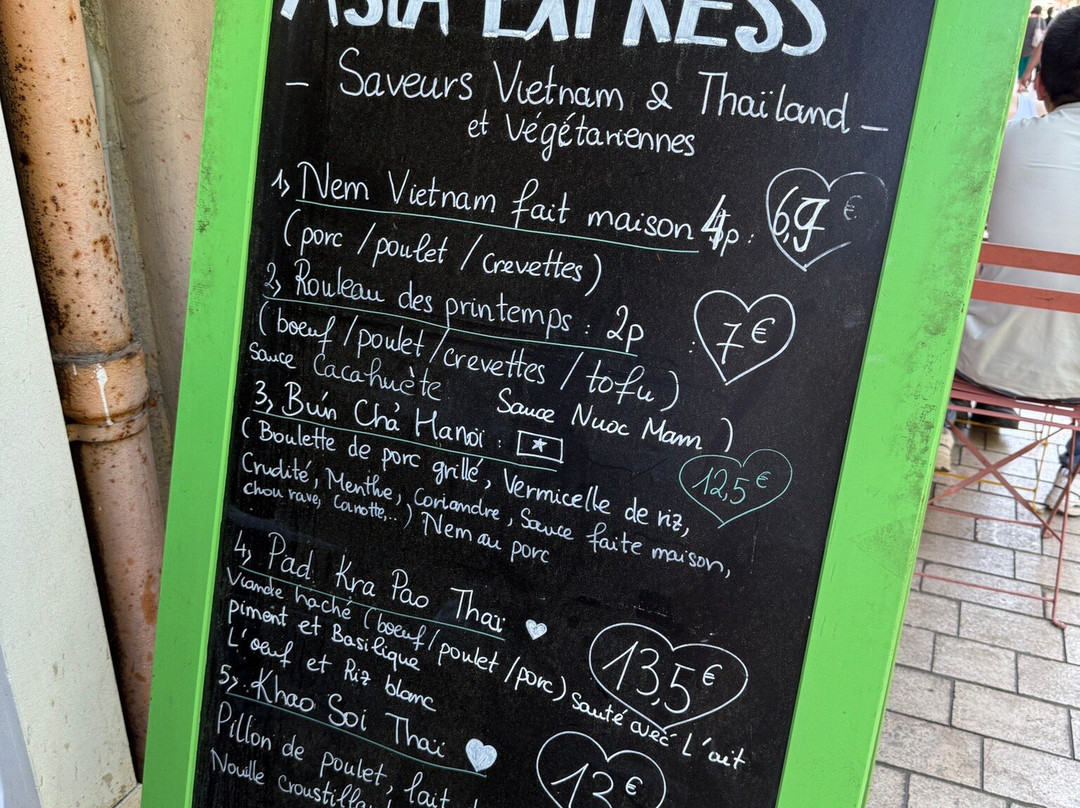 ASIA EXPRESS
– Saveurs Vietnam & Thaïland –
et Végétariennes
1, Nem Vietnam fait maison 4p : 6,9 €
(porc / poulet / crevettes)
2, Rouleau des printemps : 2p : 7 €
(boeuf / poulet / crevettes / tofu)
Sauce Cacahuète Sauce Nuoc Mam )
3, Bún Chả Hanoï : 12,5 €
( Boulette de porc grillé, Vermicelle de riz,
Crudité, Menthe, Coriandre, Sauce faite maison,
chou rave, Carotte,.. ) Nem au porc
4, Pad Kra Pao Thaï 13,5 €
Viande haché (boeuf / poulet / porc) Sauté avec L'ait
piment et Basilique
L'oeuf et Riz blanc
5, Khao Soi Thaï 13 €
Pillon de poulet, lait
Nouille